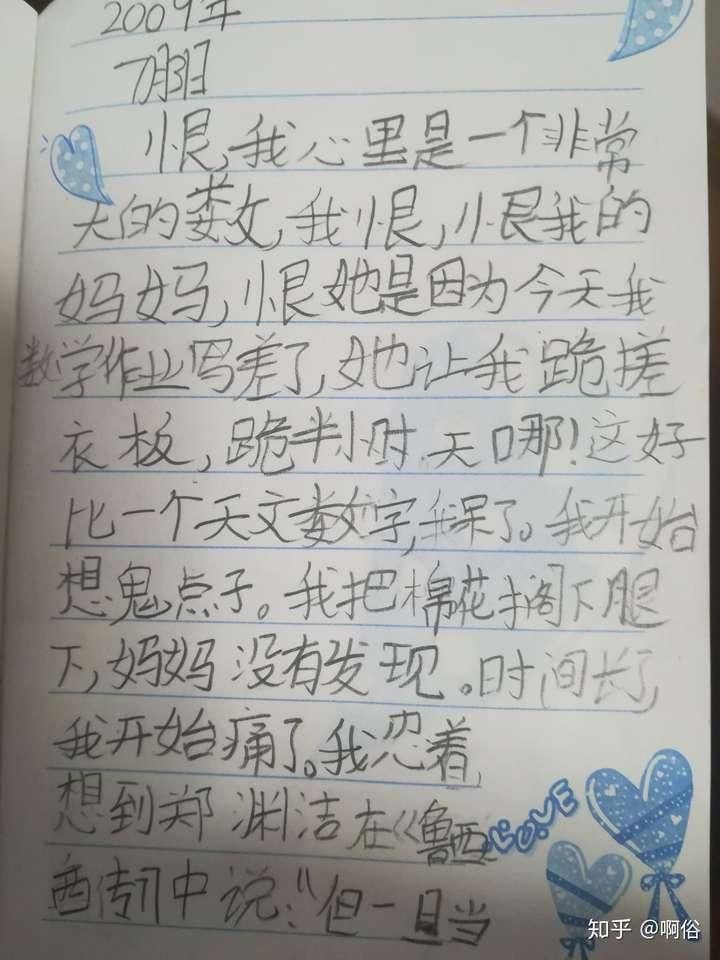 2009年
7月3日
恨,我心里是一个非常
大的数,我恨,恨我的
妈妈,恨她是因为今天我
数学作业写差了,她让我跪搓
衣板,跪半小时.天哪!这好
比一个天文数字,我呆了。我开始
想鬼点子。我把棉花搁下腿
下,妈妈没有发现。时间长了,
我开始痛了。我忍着,
想到郑渊洁在《鲁西
LOVE
西传》中说:"但一旦当
知乎 @啊俗